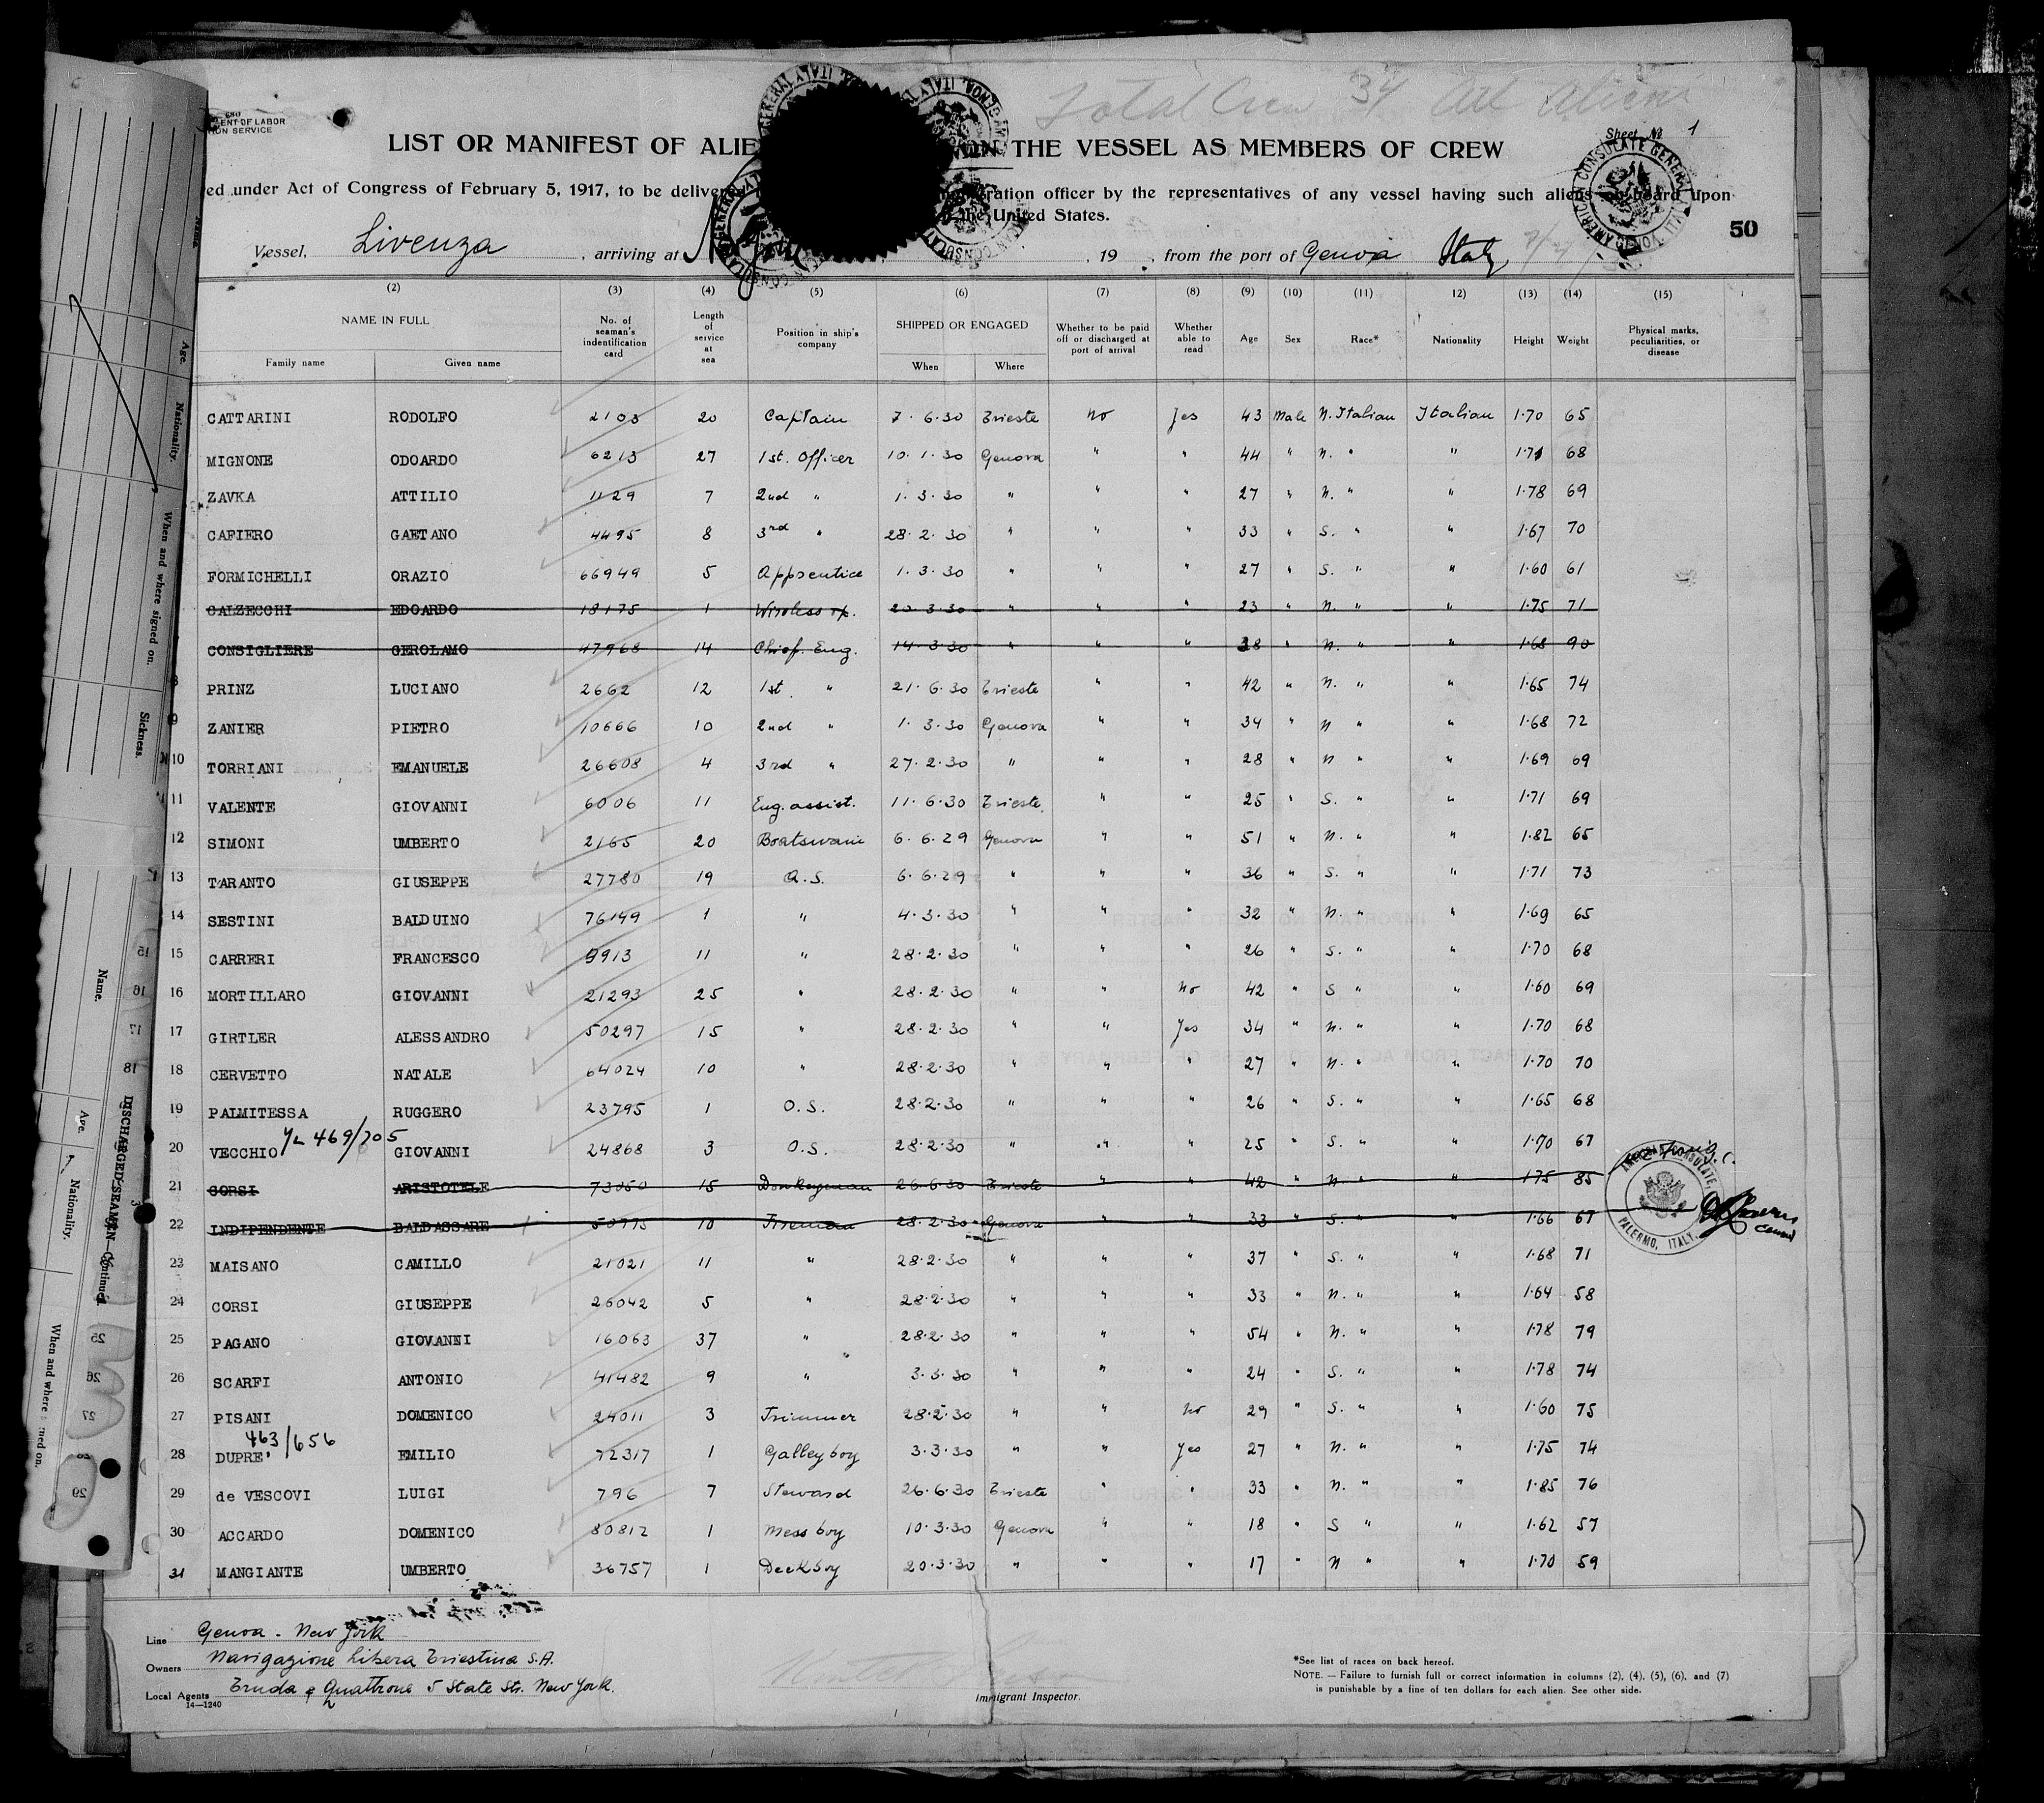 Total Crew 34 All Aliens
ENT OF LABOR
ION SERVICE
Sheet No 1
LIST OR MANIFEST OF ALIE ON THE VESSEL AS MEMBERS OF CREW
ed under Act of Congress of February 5, 1917, to be delivered ration officer by the representatives of any vessel having such aliens on board upon
the United States.
50
Vessel, Livenza , arriving at , 19 , from the port of Genoa Italy
(2) (3) (4) (5) (6) (7) (8) (9) (10) (11) 12) (13) (14) (15)
NAME IN FULL No. of seaman's indentification card Length of service at sea Position in ship's company SHIPPED OR ENGAGED Whether to be paid off or discharged at port of arrival Whether able to read Age Sex Race* Nationality Height Weight Physical marks, peculiarities, or disease
Family name Given name When Where
CATTARINI RODOLFO 2103 20 Captain 7·6·30 Trieste No Yes 43 Male N. Italian Italian 1·70 65
MIGNONE ODOARDO 6213 27 1st. Officer 10·1·30 Genova " " 44 " N. " " 1·71 68
ZAVKA ATTILIO 1129 7 2nd " 1·3·30 " " " 27 " N. " " 1·78 69
CAFIERO GAETANO 4495 8 3rd " 28·2·30 " " " 33 " S. " " 1·67 70
FORMICHELLI ORAZIO 66949 5 Apprentice 1·3·30 " " " 27 " S. " " 1·60 61
CALZECCHI EDOARDO 18175 1 Wireless op. 20·3·30 " " " 23 " N. " " 1·75 71
CONSIGLIERE GEROLAMO 47968 14 Chief. Eng. 14·3·30 " " " 38 " N. " " 1·68 90
8 PRINZ LUCIANO 2662 12 1st. " 21·6·30 Trieste " " 42 " N. " " 1·65 74
9 ZANIER PIETRO 10666 10 2nd " 1·3·30 Genova " " 34 " N " " 1·68 72
10 TORRIANI EMANUELE 26608 4 3rd " 27·2·30 " " " 28 " N " " 1·69 69
11 VALENTE GIOVANNI 6006 11 Eng. assist. 11·6·30 Trieste. " " 25 " S. " " 1·71 69
12 SIMONI UMBERTO 2165 20 Boatswain 6·6·29 Genova " " 51 " N. " " 1·82 65
13 TARANTO GIUSEPPE 27780 19 A.S. 6·6·29 " " " 36 " S. " " 1·71 73
14 SESTINI BALDUINO 76149 1 " 4·3·30 " " " 32 " N. " " 1·69 65
15 CARRERI FRANCESCO 9913 11 " 28·2·30 " " " 26 " S. " " 1·70 68
16 MORTILLARO GIOVANNI 21293 25 " 28·2·30 " " No 42 " S " " 1·60 69
17 GIRTLER ALESSANDRO 50297 15 " 28·2·30 " " Yes 34 " N. " " 1·70 68
18 CERVETTO NATALE 64024 10 " 28·2·30 " " " 27 " N. " " 1·70 70
19 PALMITESSA RUGGERO 23795 1 O.S. 28·2·30 " " " 26 " S. " " 1·65 68
469/705
20 VECCHIO GIOVANNI 24868 3 O.S. 28·2·30 " " " 25 " S. " " 1·70 67
21 CORSI ARISTOTELE 73050 15 Donkeyman 26·6·30 Trieste " " 42 " N. " " 1·75 85
22 INDIPENDENTE BALDASSARE 50775 10 Fireman 28·2·30 Genova " " 33 " S. " " 1·66 67
23 MAISANO CAMILLO 21021 11 " 28·2·30 " " " 37 " S. " " 1·68 71
24 CORSI GIUSEPPE 26042 5 " 28·2·30 " " " 33 " N. " " 1·64 58
25 PAGANO GIOVANNI 16063 37 " 28·2·30 " " " 54 " N. " " 1·78 79
26 SCARFI ANTONIO 41482 9 " 3·3·30 " " " 24 " S. " " 1·78 74
27 PISANI DOMENICO 24011 3 Trimmer 28·2·30 " " No 29 " S. " " 1·60 75
463/656
28 DUPRE' EMILIO 72317 1 Galley boy 3·3·30 " " Yes 27 " N. " " 1·75 74
29 de VESCOVI LUIGI 796 7 Steward 26·6·30 Trieste " " 33 " N. " " 1·85 76
30 ACCARDO DOMENICO 80812 1 Mess boy 10·3·30 Genova " " 18 " S " " 1·62 57
31 MANGIANTE UMBERTO 36757 1 Deck boy 20·3·30 " " " 17 " N " " 1·70 59
AMERICAN CONSULATE, PALERMO, ITALY.
Line Genoa - New York
Owners Navigazione Libera Triestina S.A.
Local Agents Truda & Quattrone 5 State Str. New York.
14—1240
Immigrant Inspector.
*See list of races on back hereof.
NOTE. — Failure to furnish full or correct information in columns (2), (4), (5), (6), and (7)
is punishable by a fine of ten dollars for each alien. See other side.
Age.
Nationality.
When and where signed on.
Sickness.
Name.
Age.
Nationality.
DISCHARGED SEAMEN—Continued